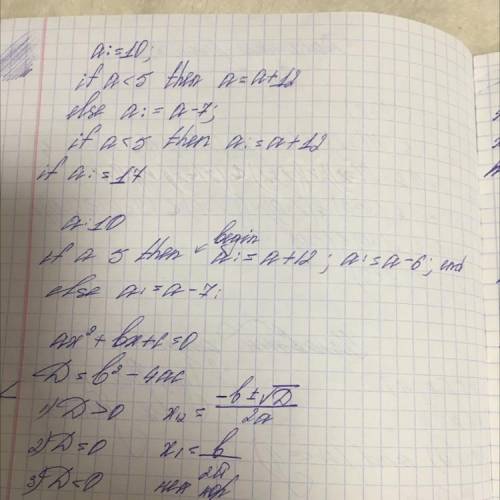 a:=10;
if a<5 then a=a+12
else a:=a-7;
if a<5 then a:=a+12
if a:=17
a:10
if a 5 then begin a:=a+12; a:=a-6; end
else a:=a-7;
ax²+bx+c=0
D=b²-4ac
1) D>0 x₁₂= -b±√D / 2a
2) D=0 x₁= b / 2a
3) D<0 нет кор